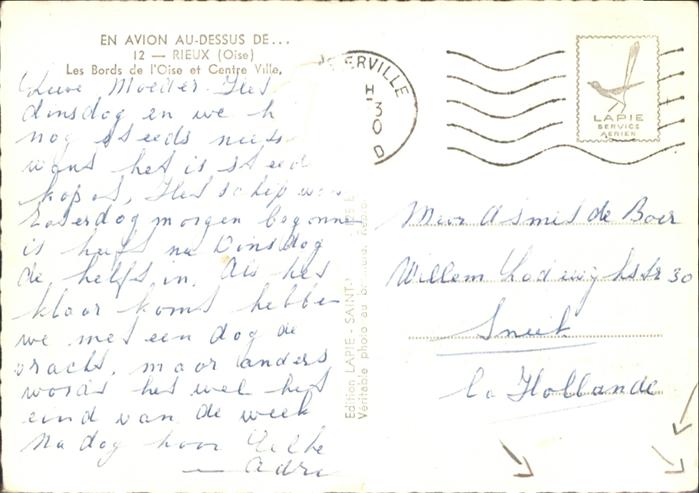 EN AVION AU-DESSUS DE...
12 — RIEUX (Oise)
Les Bords de l'Oise et Centre Ville.
Moeder. Het
dinsdag en we h
nog steeds niets
want het is steed
kapot, Het schip was
Zaterdag morgen begonne
is het nu Dinsdag
de helft in. Als het
klaar komt hebbe
we met een dag de
vracht, maar anders
wordt het wel het
eind van de week
Na dag hoor
Adri
ERVILLE
H
30
D
LAPIE
SERVICE
AERIEN
Edition LAPIE - SAINT-
Véritable photo au
Mevr A Smit de Boer
Willem Lodewijkstr 30
Sneek
la Hollande